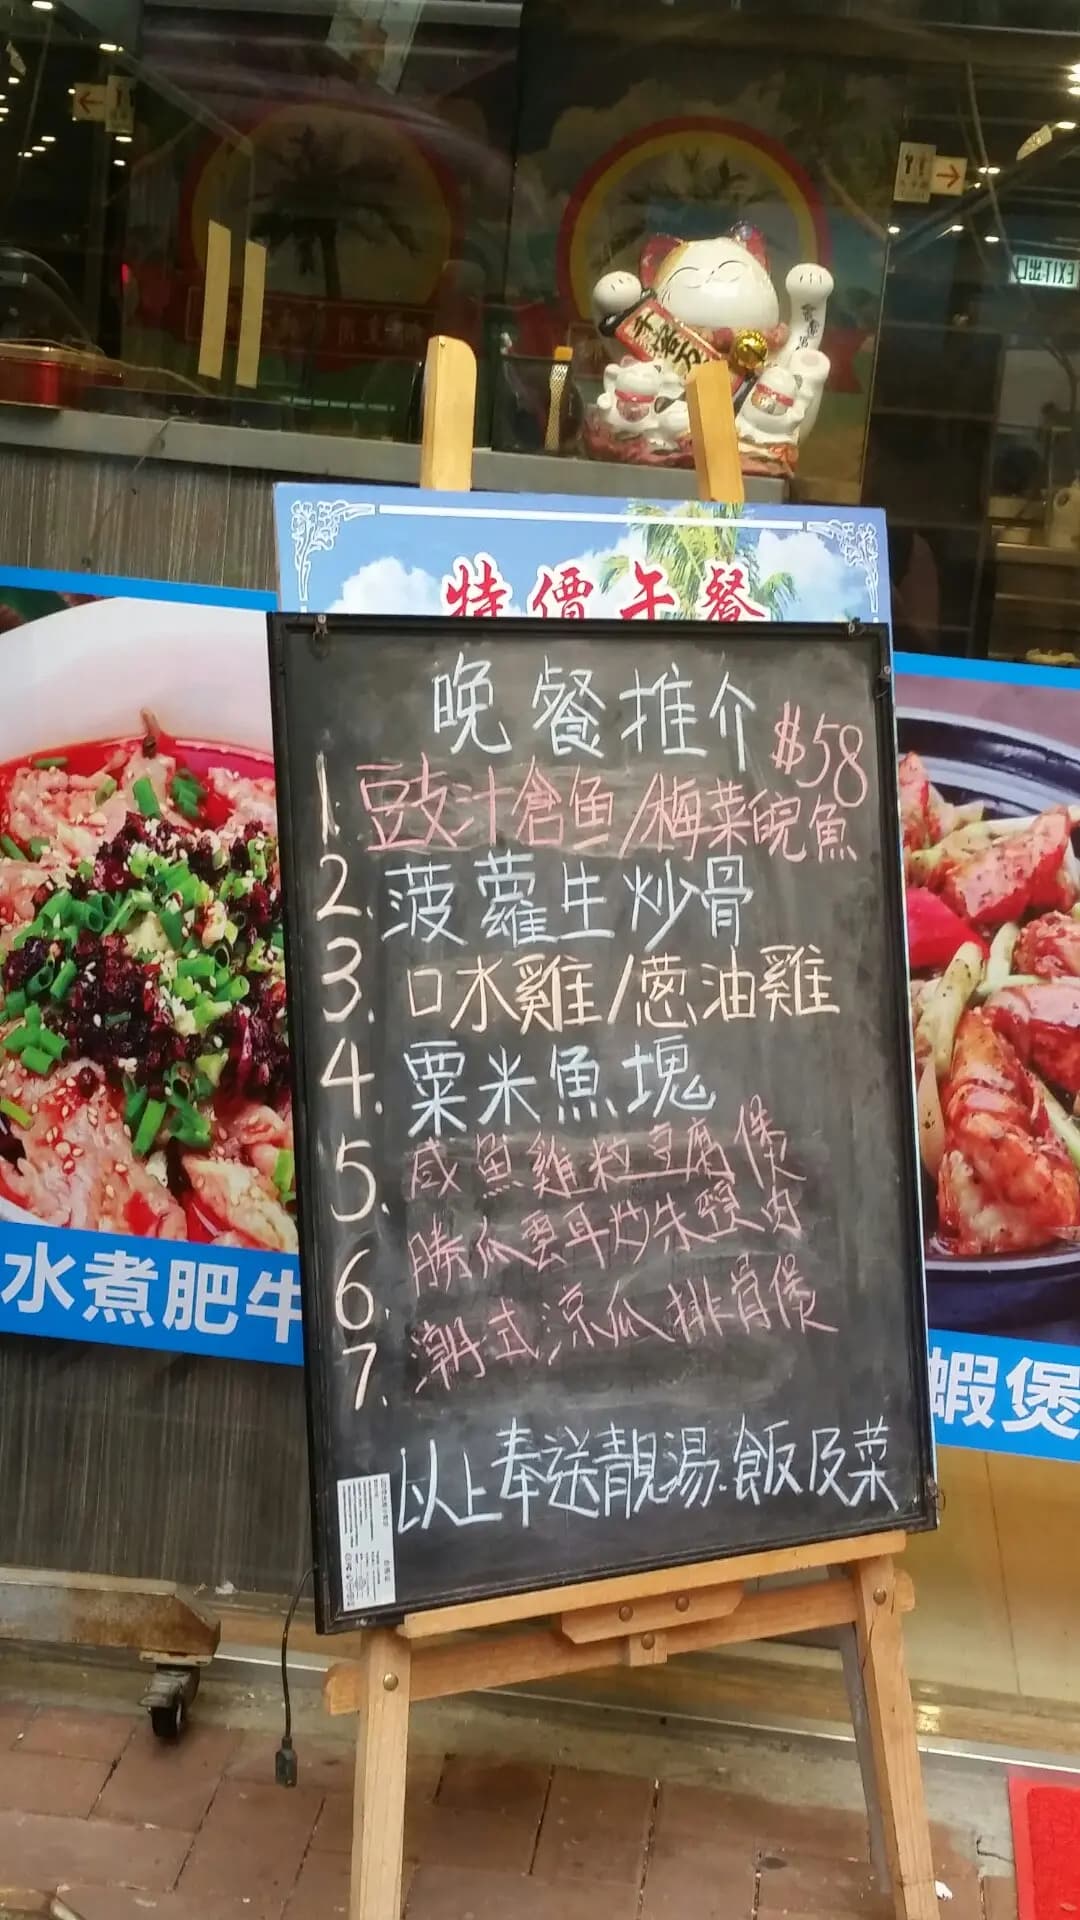 EXIT 出口
千萬
特價午餐
晚餐推介
$58
1. 豉汁倉鱼/梅菜鯇魚
2. 菠蘿生炒骨
3. 口水雞/葱油雞
4. 粟米魚塊
5. 咸魚雞粒豆腐煲
6. 勝瓜雲耳炒朱頸肉
7. 潮式涼瓜排骨煲
以上奉送靚湯.飯及菜
水煮肥牛
蝦煲